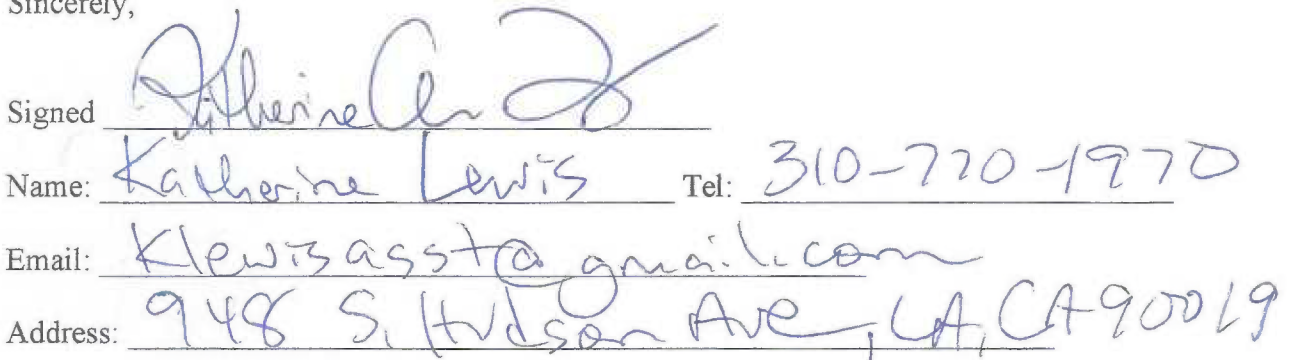 Sincerely,
Signed Katherine
Name: Katherine Lewis Tel: 310-770-1970
Email: Klewisasst@gmail.com
Address: 948 S. Hudson Ave, LA, CA 90019